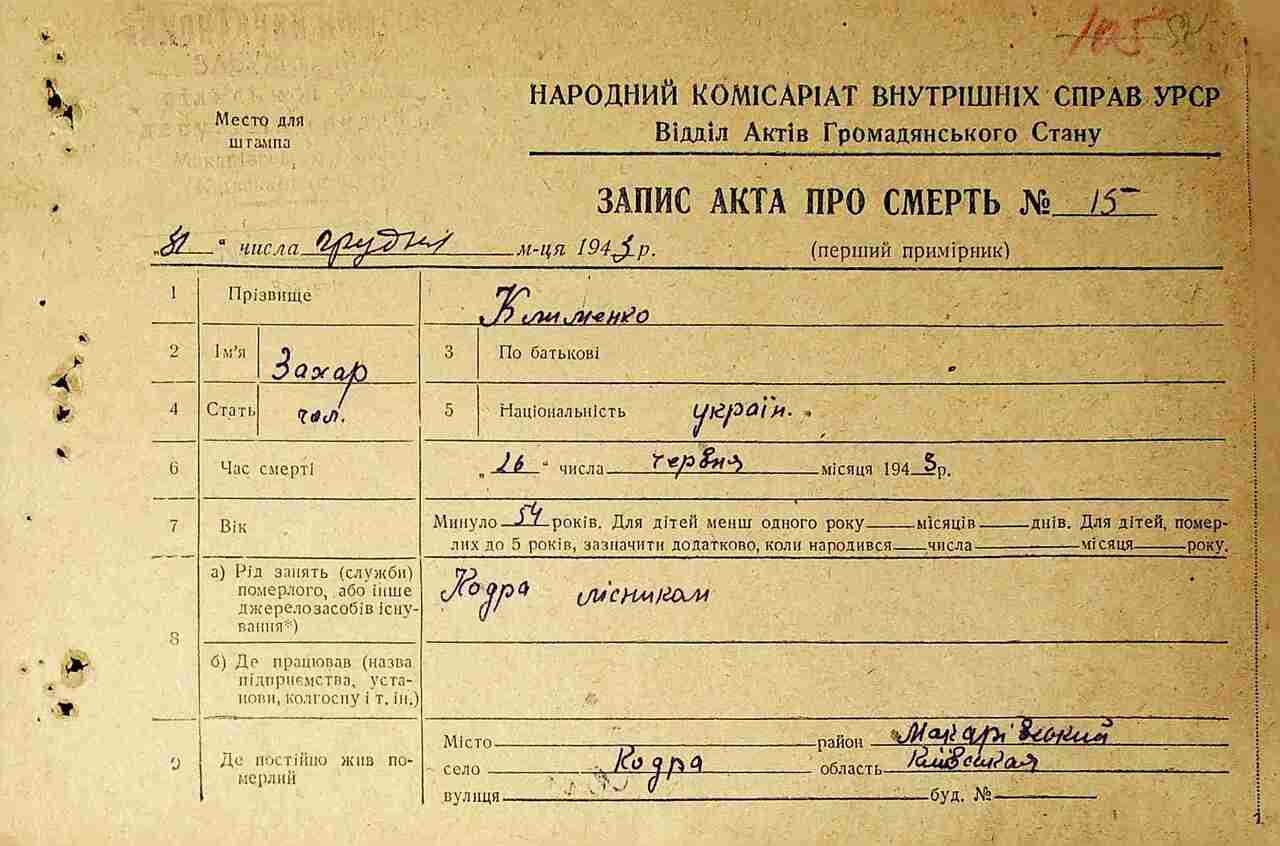 105
НАРОДНИЙ КОМІСАРІАТ ВНУТРІШНІХ СПРАВ УРСР
Відділ Актів Громадянського Стану
Место для
штампа
ЗАПИС АКТА ПРО СМЕРТЬ № 15
„31“ числа грудня м-ця 1943 р.
(перший примірник)
1 Прізвище Клименко
2 Ім'я Захар 3 По батькові
4 Стать чол. 5 Національність україн.
6 Час смерті „26“ числа червня місяця 1943р.
7 Вік Минуло 54 років. Для дітей менш одного року місяців днів. Для дітей, помер-
лих до 5 років, зазначити додатково, коли народився числа місяця року.
8 а) Рід занять (служби)
померлого, або інше
джерело засобів існу-
вання*)
Кодра лісником
б) Де працював (назва
підприємства, уста-
нови, колгоспу і т. ін.)
9 Де постійно жив по-
мерлий
Місто район Макарівський
село Кодра область Київская
вулиця буд. №
1